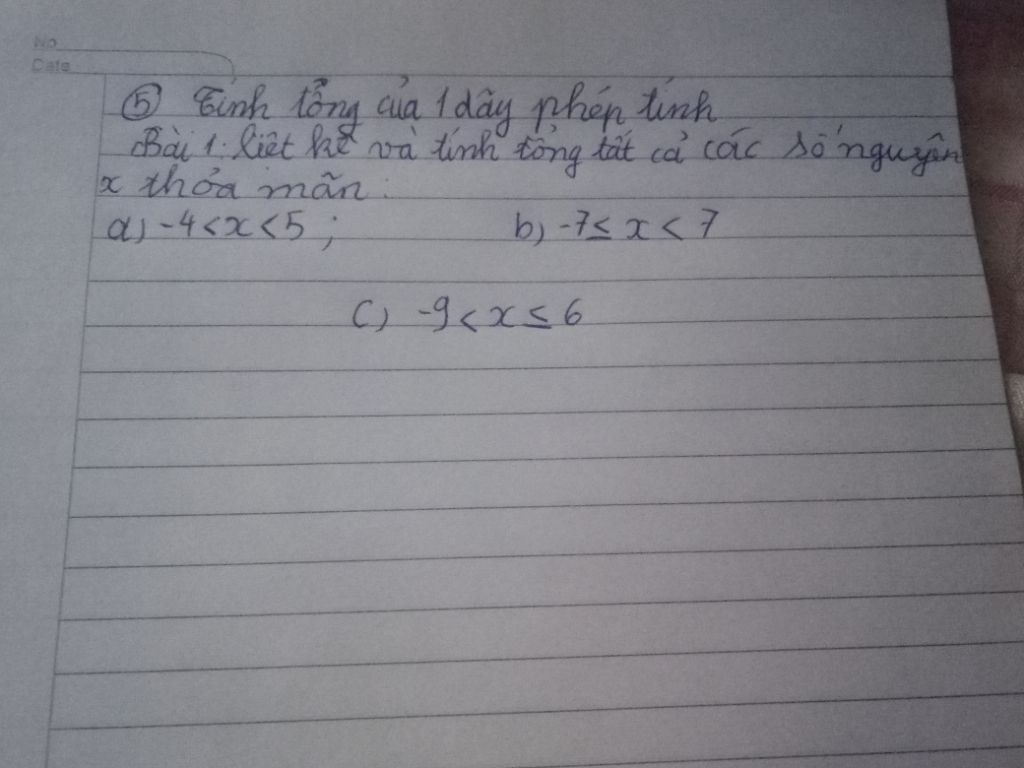 No
Date
⑤ Tính tổng của 1 dãy phép tính
Bài 1: liệt kê và tính tổng tất cả các số nguyên
x thỏa mãn:
a) -4 < x < 5 ; b) -7 ≤ x < 7
c) -9 < x ≤ 6